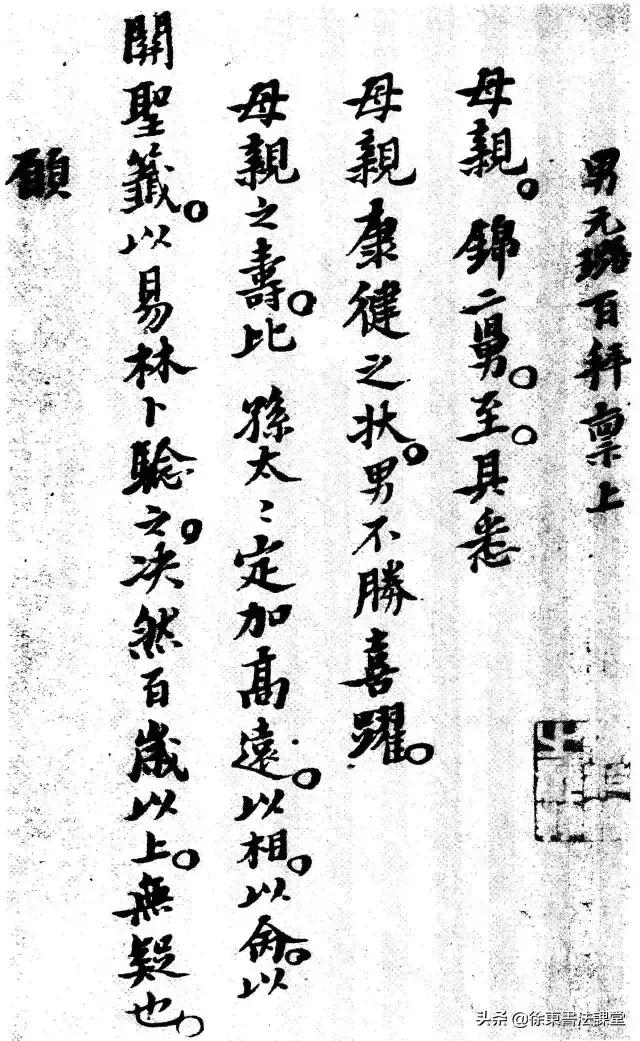 男元璐百拜稟上
母親。錦二舅。至。具悉
母親康健之狀。男不勝喜躍。
母親之壽。比 孫太〻定加高遠。以相。以命。以
關聖籤。以易林卜驗之。决然百歲以上。無疑也。
願
头条 @徐東書法課堂